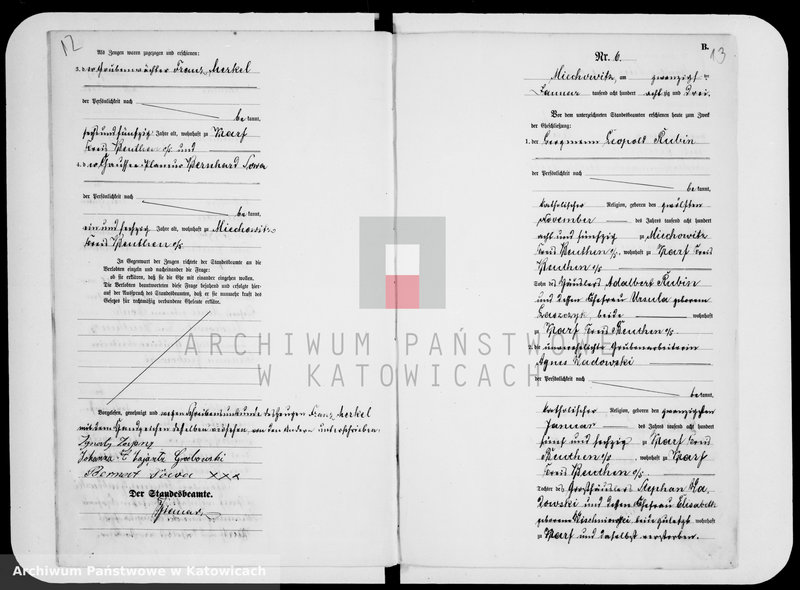 12
Als Zeugen waren zugezogen und erschienen:
3. der Grubenwächter Franz Merkel
der Persönlichkeit nach
be kannt,
sechsundfünfzig Jahre alt, wohnhaft zu Karf
Kreis Beuthen o/s und
4. der Chaussee-Planeur Bernhard Sowa
der Persönlichkeit nach
be kannt,
ein und sechzig Jahre alt, wohnhaft zu Miechowitz
Kreis Beuthen o/s.
In Gegenwart der Zeugen richtete der Standesbeamte an die
Verlobten einzeln und nacheinander die Frage:
ob sie erklären, daß sie die Ehe mit einander eingehen wollen.
Die Verlobten beantworteten diese Frage bejahend und erfolgte hier-
auf der Ausspruch des Standesbeamten, daß er sie nunmehr kraft des
Gesetzes für rechtmäßig verbundene Eheleute erkläre.
Vorgelesen, genehmigt und wegen Schreibensunkunde des Zeugen Franz Merkel
mit dem Handzeichen desselben versehen, von den Anderen unterschrieben:
Johanna Grabowski
Bernart Sowa XXX
Der Standesbeamte.
B.
13
Nr. 6.
Miechowitz, am zwanzigsten
Januar tausend acht hundert achtzig und drei.
Vor dem unterzeichneten Standesbeamten erschienen heute zum Zweck
der Eheschließung:
1. der Bergmann Leopold Rubin
der Persönlichkeit nach
be kannt,
katholischer Religion, geboren den zwölften
November des Jahres tausend acht hundert
acht und fünfzig zu Miechowitz
Kreis Beuthen o/s, wohnhaft zu Karf Kreis
Beuthen o/s
Sohn des Häuslers Adalbert Rubin
und dessen Ehefrau Ursula geborene
Laszczyk, beide wohnhaft
zu Karf Kreis Beuthen o/s.
2. die unverehelichte Grubenarbeiterin
Agnes Kadowski
der Persönlichkeit nach
be kannt,
katholischer Religion, geboren den zwanzigsten
Januar des Jahres tausend acht hundert
fünf und sechzig zu Karf Kreis
Beuthen o/s, wohnhaft zu Karf
Kreis Beuthen o/s.
Tochter des Großhäuslers Stephan Ka-
dowski und dessen Ehefrau Elisabeth
geborene beide zuletzt wohnhaft
zu Karf und daselbst verstorben.
ARCHIWUM PAŃSTWOWE
W KATOWICACH
Archiwum Państwowe w Katowicach